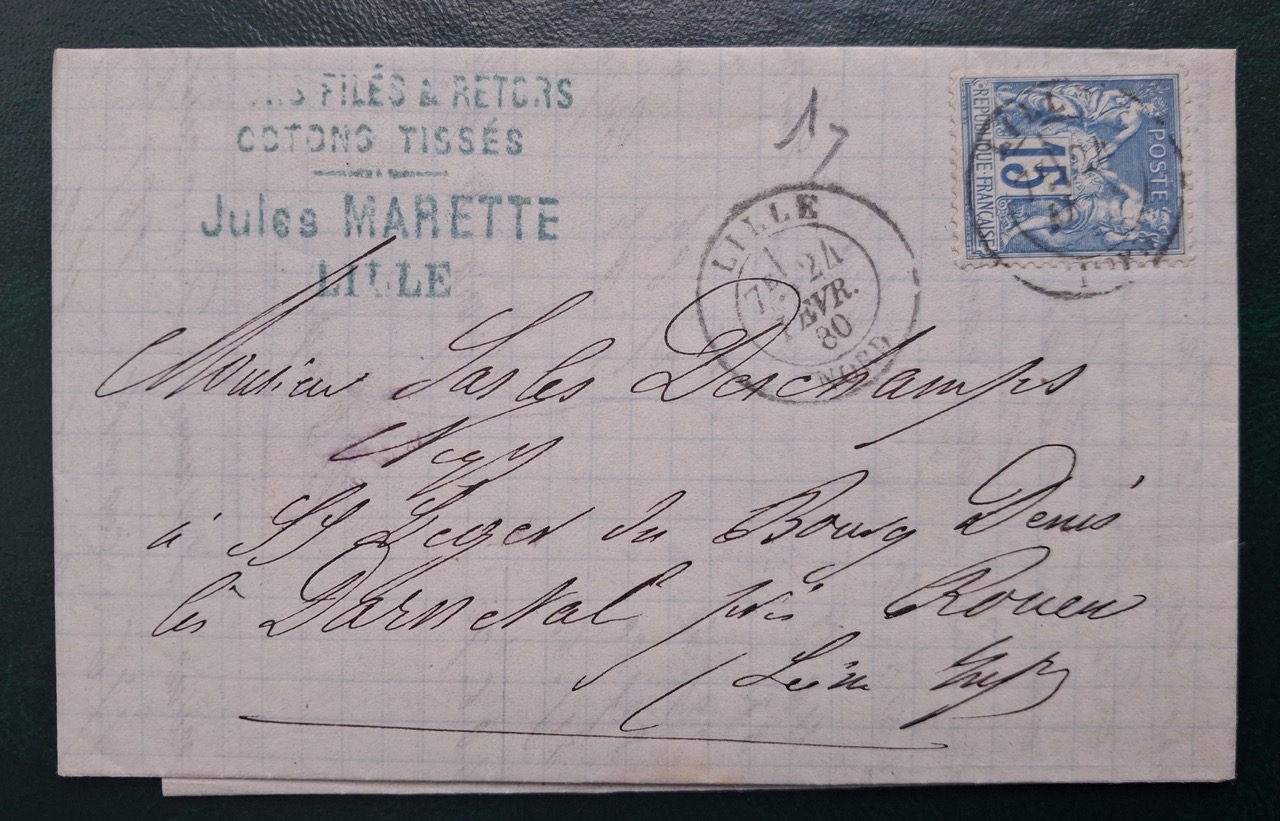 FILÉS & RETORS
COTONS TISSÉS
Jules MARETTE
LILLE
17
REPUBLIQUE FRANÇAISE
15
POSTE
LILLE
7E 24
FEVR.
80
NORD
Monsieur Deschamps
Negt
à St Leger du Bourg Denis
lès Darnetal près Rouen
Seine Infre